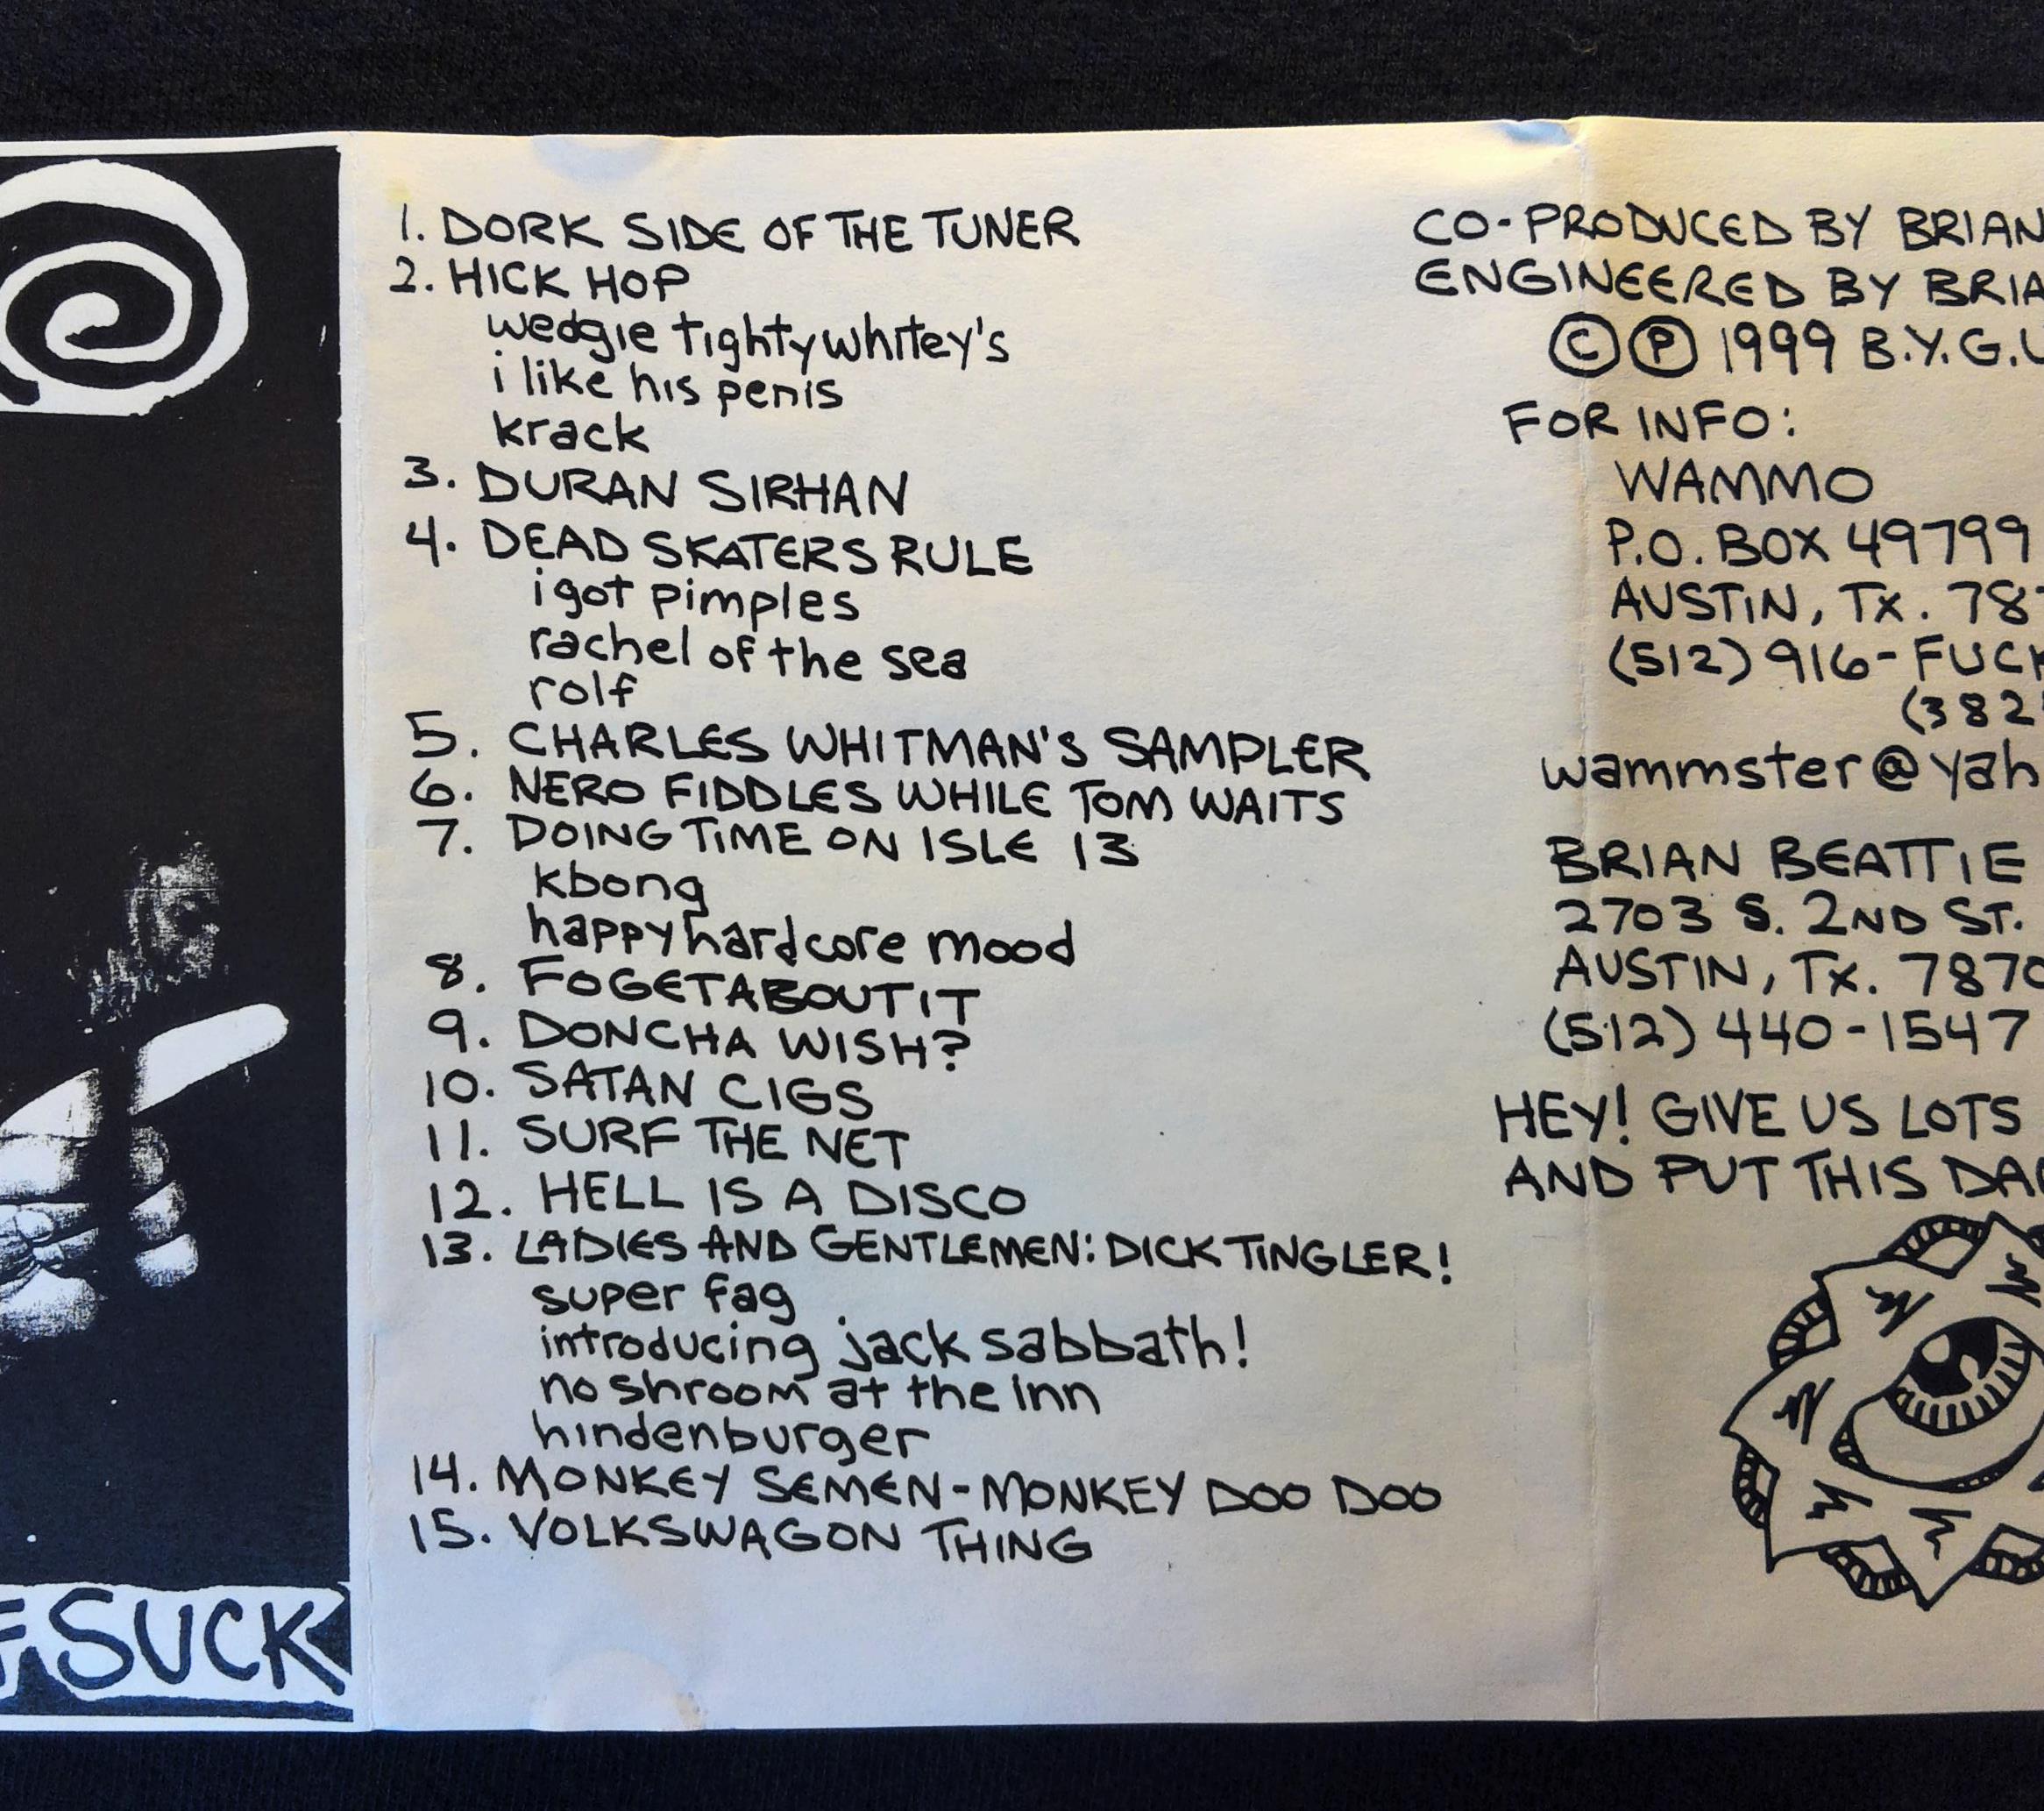 1. DORK SIDE OF THE TUNER
2. HICK HOP
wedgie tightywhitey's
i like his penis
krack
3. DURAN SIRHAN
4. DEAD SKATERS RULE
i got pimples
rachel of the sea
rolf
5. CHARLES WHITMAN'S SAMPLER
6. NERO FIDDLES WHILE TOM WAITS
7. DOING TIME ON ISLE 13
kbong
happy hardcore mood
8. FOGETABOUTIT
9. DONCHA WISH?
10. SATAN CIGS
11. SURF THE NET
12. HELL IS A DISCO
13. LADIES AND GENTLEMEN: DICK TINGLER!
super fag
introducing jack sabbath!
no shroom at the inn
hindenburger
14. MONKEY SEMEN-MONKEY DOO DOO
15. VOLKSWAGON THING
CO-PRODUCED BY BRIAN
ENGINEERED BY BRIA
© ℗ 1999 B.Y.G.U
FOR INFO:
WAMMO
P.O. BOX 49799
AUSTIN, TX. 787
(512) 916-FUCK
(382
wammster@yah
BRIAN BEATTIE
2703 S. 2ND ST.
AUSTIN, TX. 7870
(512) 440-1547
HEY! GIVE US LOTS
AND PUT THIS DA
SUCK